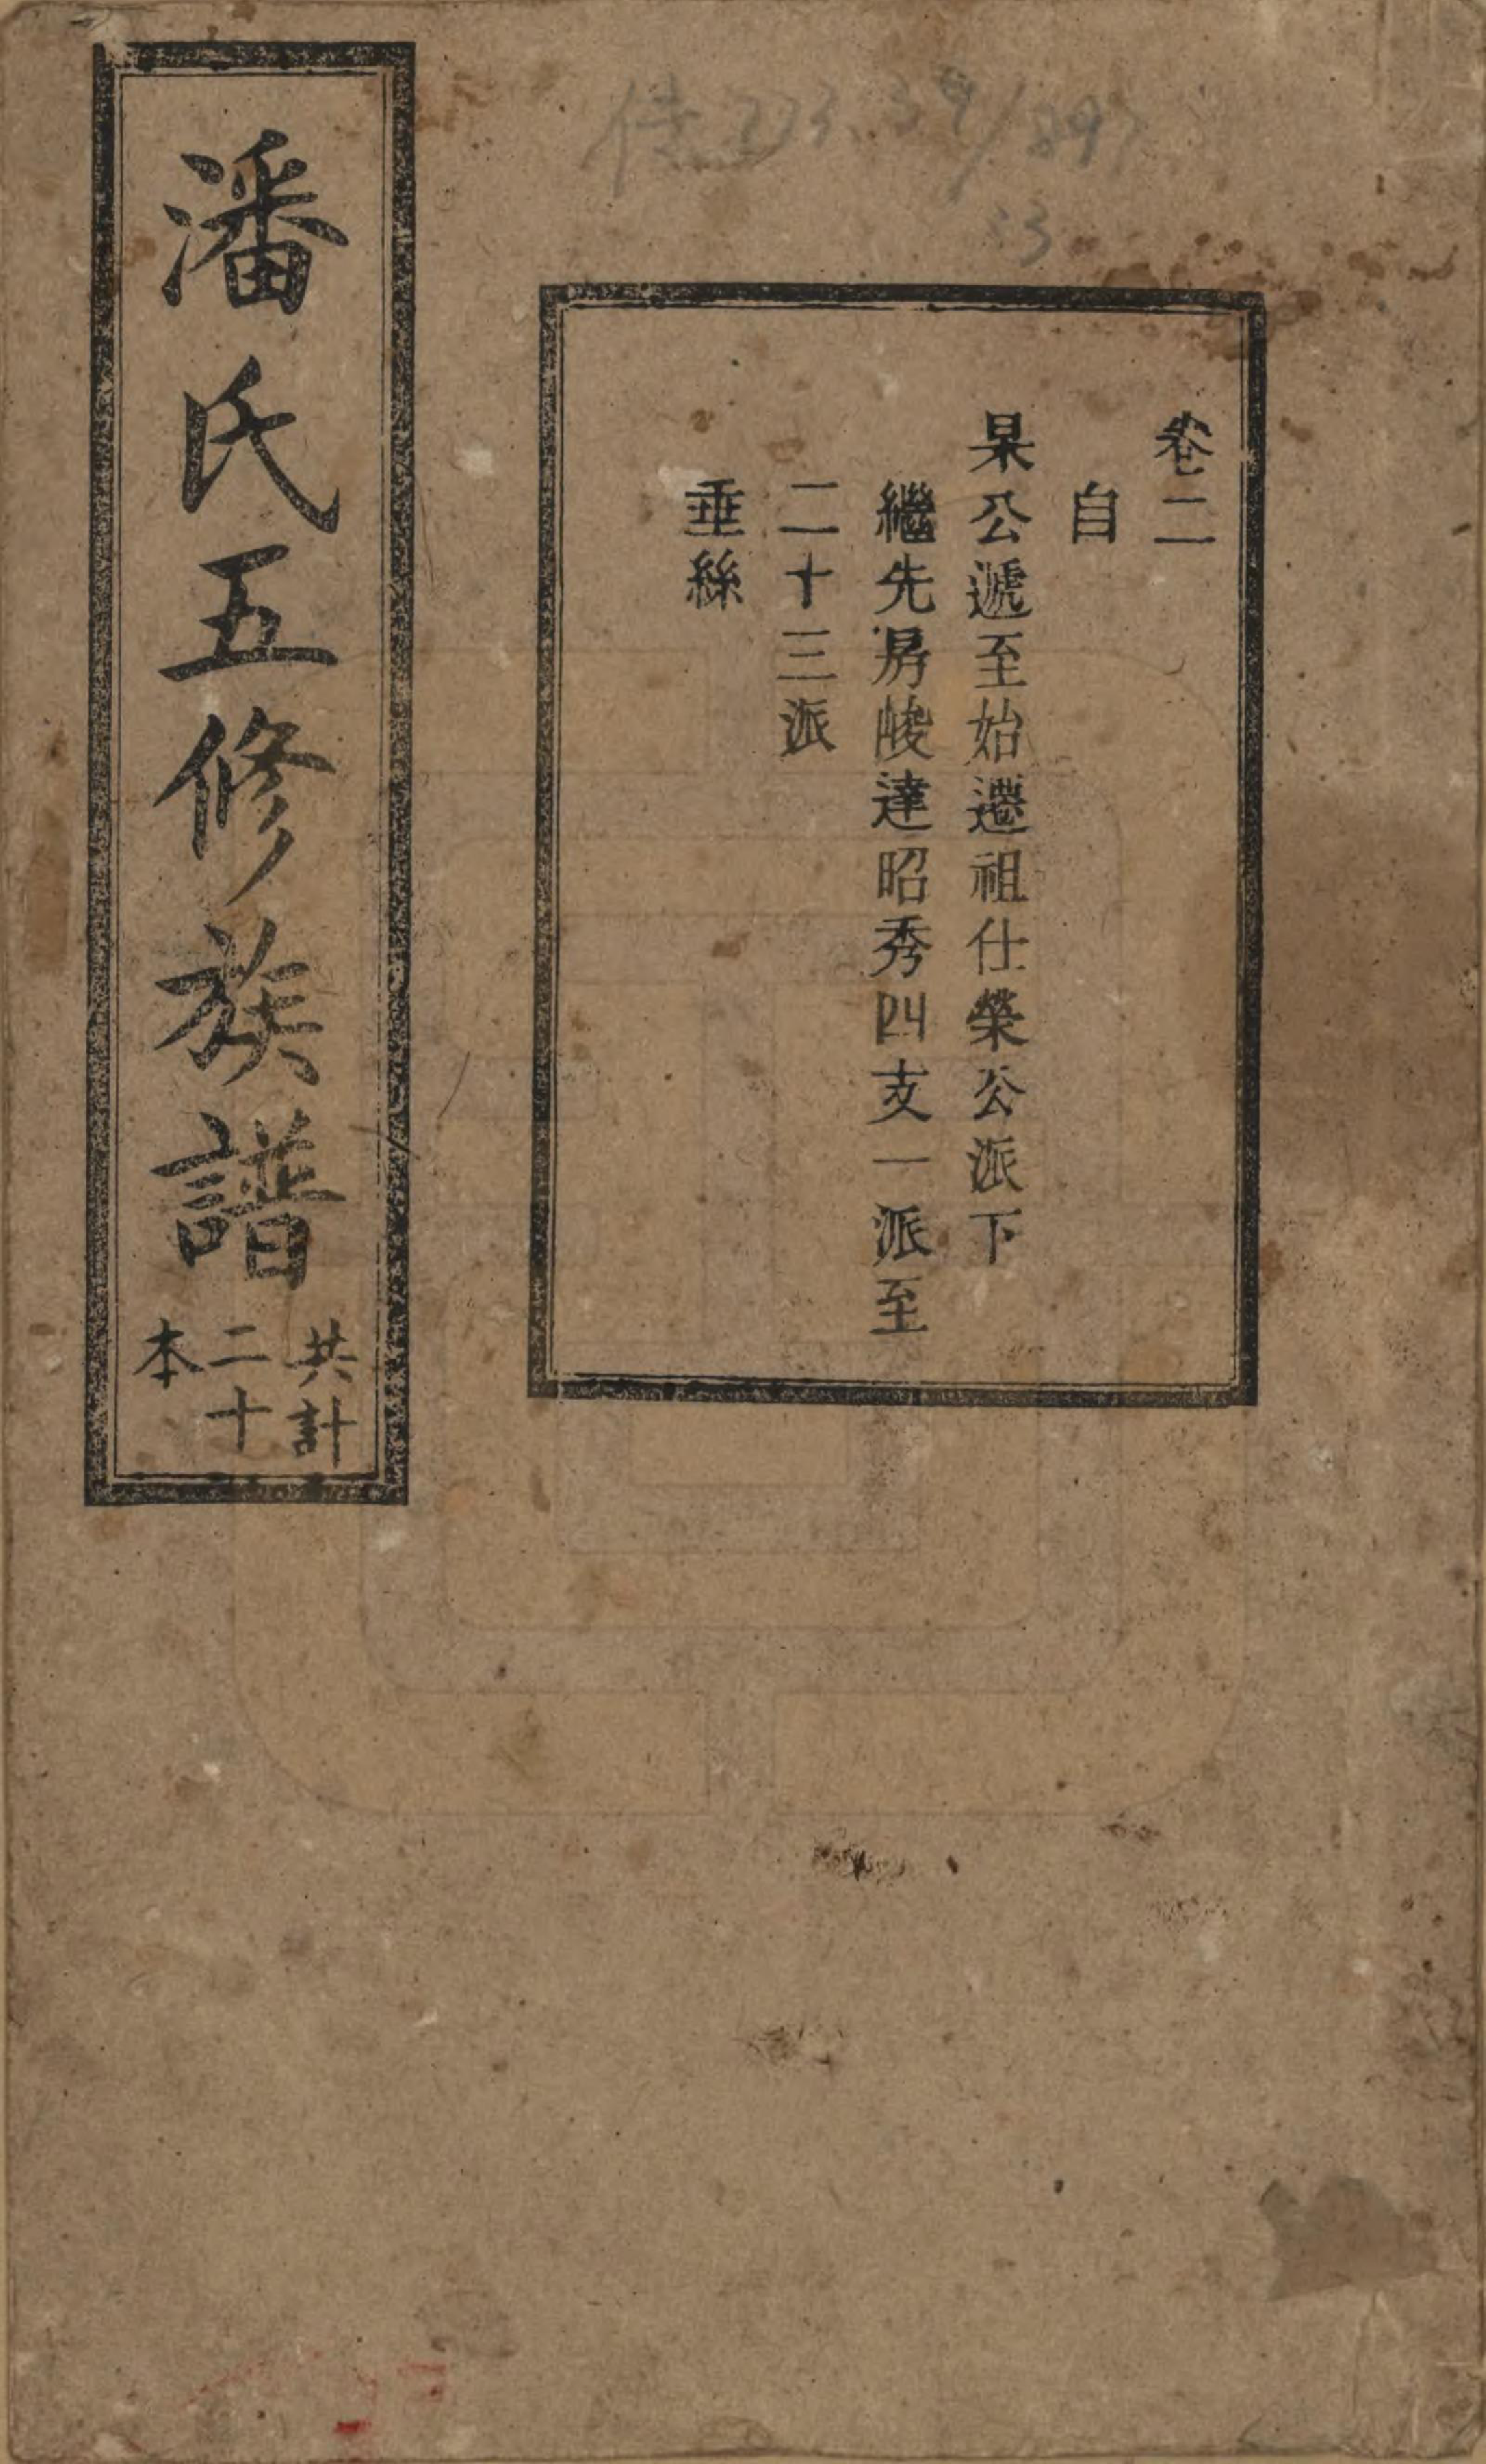 卷二
自
杲公遞至始遷祖仕榮公派下
繼先房峻達昭秀四支一派至
二十三派
垂絲
潘氏五修族譜
共計
二十
本